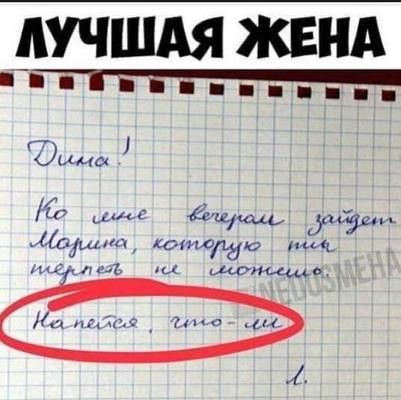 ЛУЧШАЯ ЖЕНА
Дима!
Ко мне вечером зайдет
Марина, которую ты
терпеть не можешь.
Напейся, что-ли
Л.
NEDUSMEHA